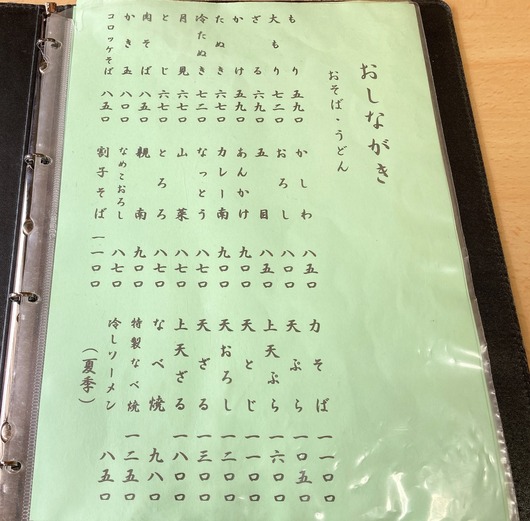 おしながき
おそば・うどん
もり 五九〇
大もり 七二〇
ざる 六九〇
かけ 五九〇
たぬき 六七〇
冷たぬき 七二〇
月見 六七〇
とじ 六七〇
肉そば 八五〇
かき五 八〇〇
コロッケそば 八五〇
かしわ 八五〇
おろし 八〇〇
五目 八五〇
あんかけ 九〇〇
カレー南 九〇〇
なっとう 八七〇
山菜 八七〇
とろろ 八七〇
親南 九〇〇
なめこおろし 八七〇
割子そば 一一〇〇
力そば 一一〇〇
天ぷら 一〇五〇
上天ぷら 一六〇〇
天とじ 一一〇〇
天おろし 一二〇〇
天ざる 一三〇〇
上天ざる 一八〇〇
なべ焼 九八〇
特製なべ焼 一二五〇
冷しソーメン 八五〇
(夏季)